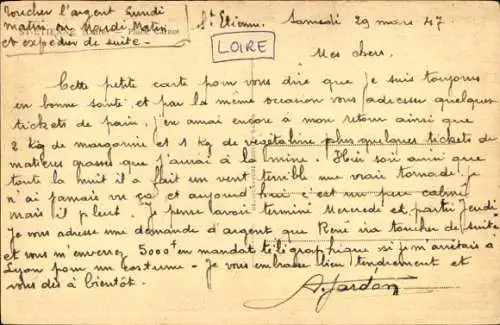 Toucher l'argent Lundi
matin ou Mardi Matin
et expédier de suite -
ST-ETIENNE Place Carnot
St Etienne. Samedi 29 mars 47
LOIRE
Mes chers.
Cette petite carte pour vous dire que je suis toujours
en bonne santé, et par la même occasion vous adresser quelques
tickets de pain, j'en aurai encore à mon retour ainsi que
2 kg de margarine et 1 kg de végétaline plus quelques tickets de
matières grasses que j'aurai à la mine. Hier soir ainsi que
toute la nuit il a fait un vent terrible une vraie tornade je
n'ai jamais vu ça et aujourd'hui c'est un peu calmé
mais il pleut. Je pense avoir terminé Mercredi et partir Jeudi
Je vous adresse une demande d'argent que René ira toucher de suite
et vous m'enverrez 5000f en mandat télégraphique si je m'arrêtais à
Lyon pour un costume - Je vous embrasse bien tendrement et
vous dis à bientôt.
A. Jardon